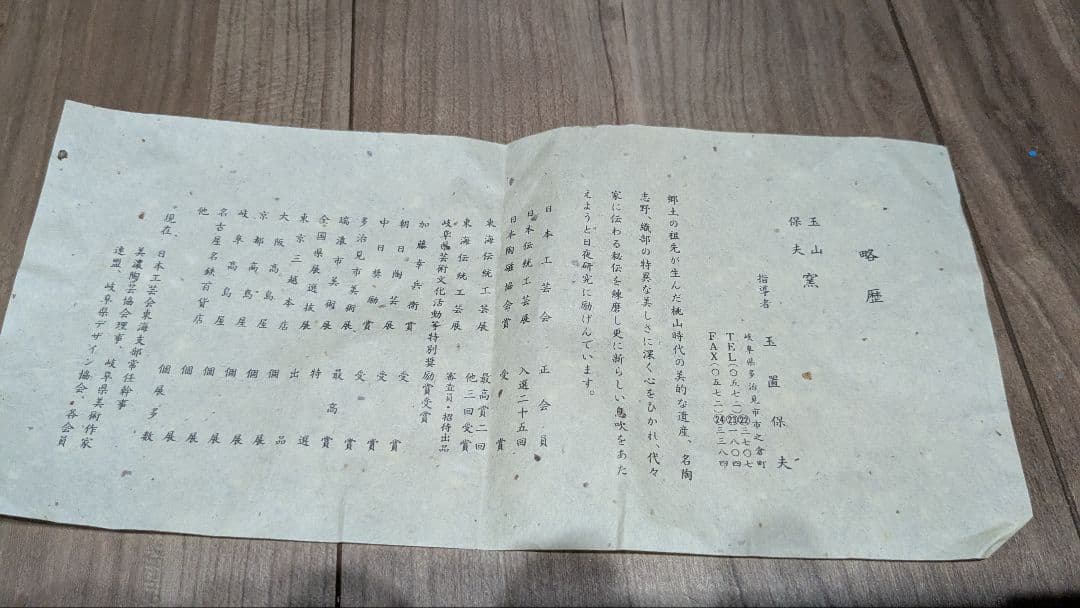 略歴
玉山窯
保夫
指導者 玉置保夫
岐阜県多治見市市之倉町
TEL(〇五七二)㉒三七〇七
㉓一八〇四
FAX(〇五七二)㉔三三八四
郷土の祖先が生んだ桃山時代の美的な遺産、名陶
志野、織部の特異な美しさに深く心をひかれ、代々
家に伝わる秘伝を錬磨し更に新らしい息吹をあた
えようと日夜研究に励げんでいます。
日本工芸会正会員
日本伝統工芸展 入選二十五回
日本陶磁協会賞 受賞
東海伝統工芸展 最高賞二回
他三回受賞
東海伝統工芸展 審査員・招待出品
岐阜県芸術文化活動等特別奨励賞受賞
加藤幸兵衛賞 受賞
朝日陶芸展 受賞
中日奨励賞 受賞
多治見市美術展 最高賞
瑞浪市美術展 特選
全国県展選抜展 出品
東京三越本店 個展
大阪高島屋 個展
京都高島屋 個展
岐阜高島屋 個展
名古屋名鉄百貨店 個展
他 個展多数
現在、日本工芸会東海支部常任幹事
美濃陶芸協会理事、岐阜県美術作家
連盟、岐阜県デザイン協会、各会員